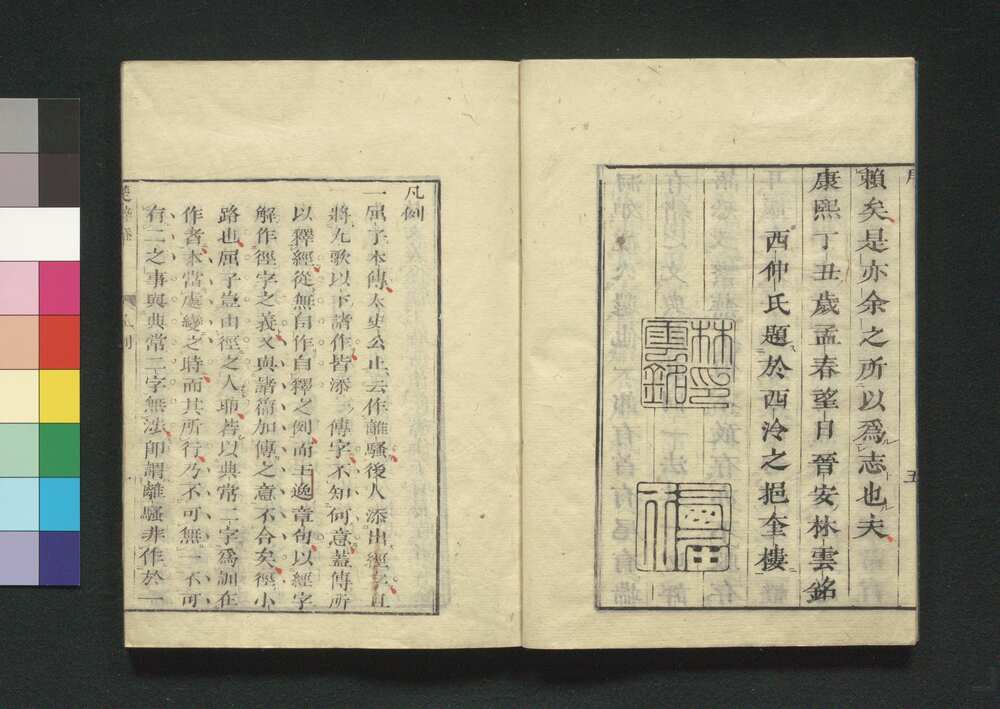 賴矣是亦余之所以爲志也夫
康熙丁丑歲孟春望日晉安林雲銘
西仲氏題於西泠之挹奎樓
五
林雲銘印
凡例
一屈子本傳太史公止云作離騷後人添出經字且
將九歌以下諸作皆添一傳字不知何意蓋傳所
以釋經從無自作自釋之例而王逸章句以經字
解作徑字之義又與諸篇加傳之意不合矣徑小
路也屈子豈由徑之人耶若以典常二字爲訓在
作者本當處變之時而其所行乃不可無一不可
有二之事與典常二字無涉即謂離騷非作於一